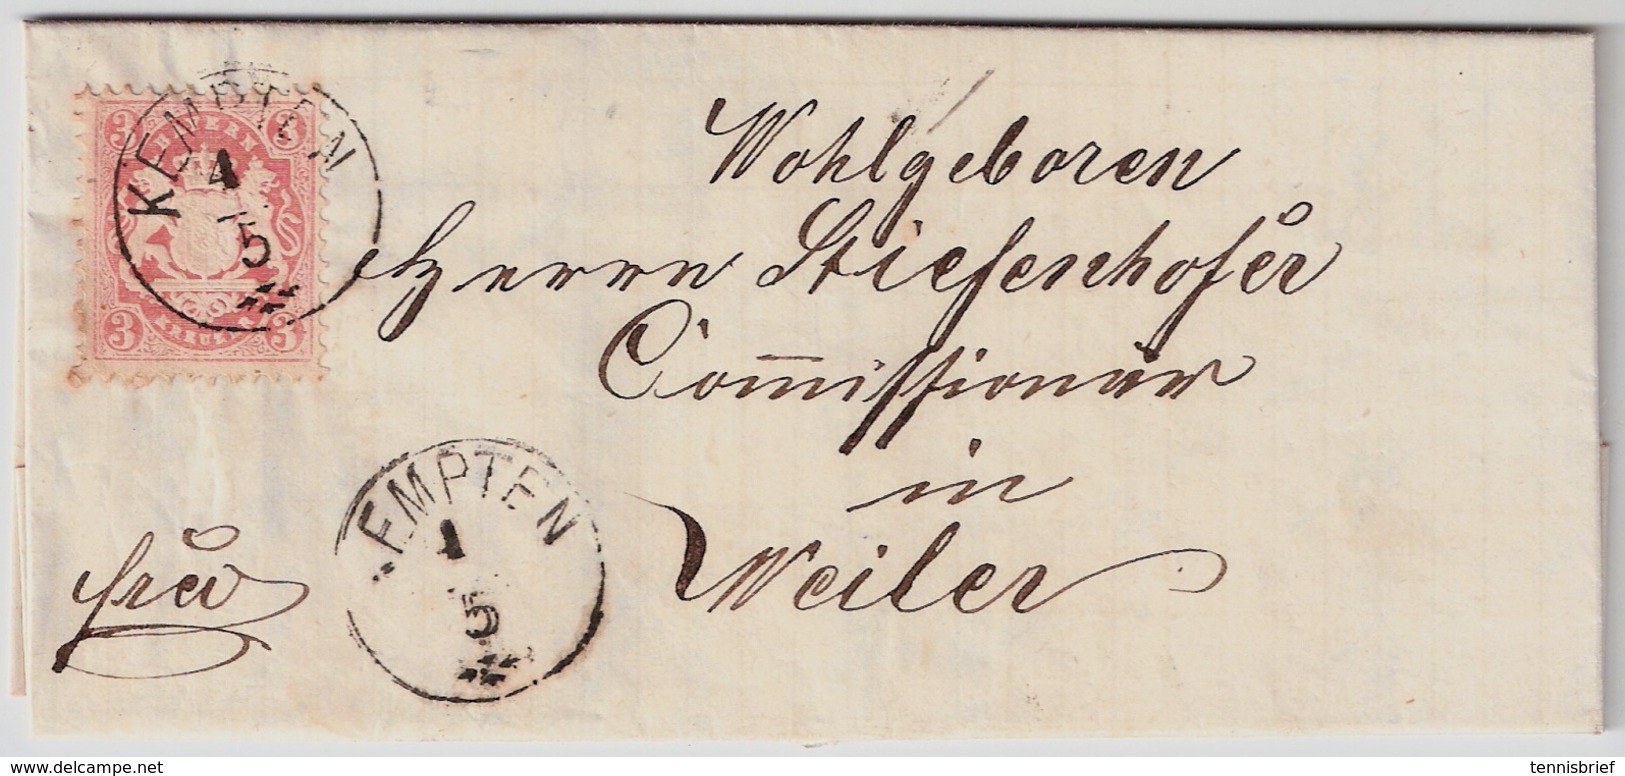 3 3
BAYERN
3 3
KREUZER
KEMPTEN
4
5
Wohlgeboren
Herrn Stiefenhofer
Commissionär
in
Weiler
KEMPTEN
4
5
frco
www.delcampe.net
tennisbrief